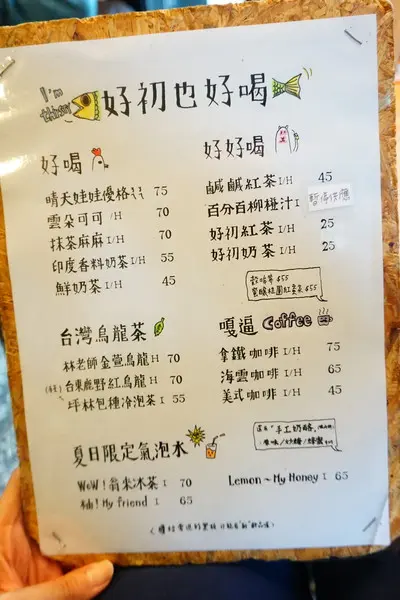 I'm
好初也好喝
好喝
晴天娃娃優格 75
雲朵可可 /H 70
抹茶麻麻 I/H 70
印度香料奶茶 I/H 55
鮮奶茶 I/H 45
好好喝
鹹鹹紅茶 I/H 45
百分百柳橙汁 I 暫停供應
好初紅茶 I/H 25
好初奶茶 I/H 25
台灣烏龍茶
林老師金萱烏龍 H 70
台東鹿野紅烏龍 H 70
坪林包種冷泡茶 I 55
嘎逼 Coffee
拿鐵咖啡 I/H 75
海雲咖啡 I/H 65
美式咖啡 I/H 45
夏日限定氣泡水
WOW！翁來冰茶 I 70
柚！My friend I 65
Lemon~My Honey I 65